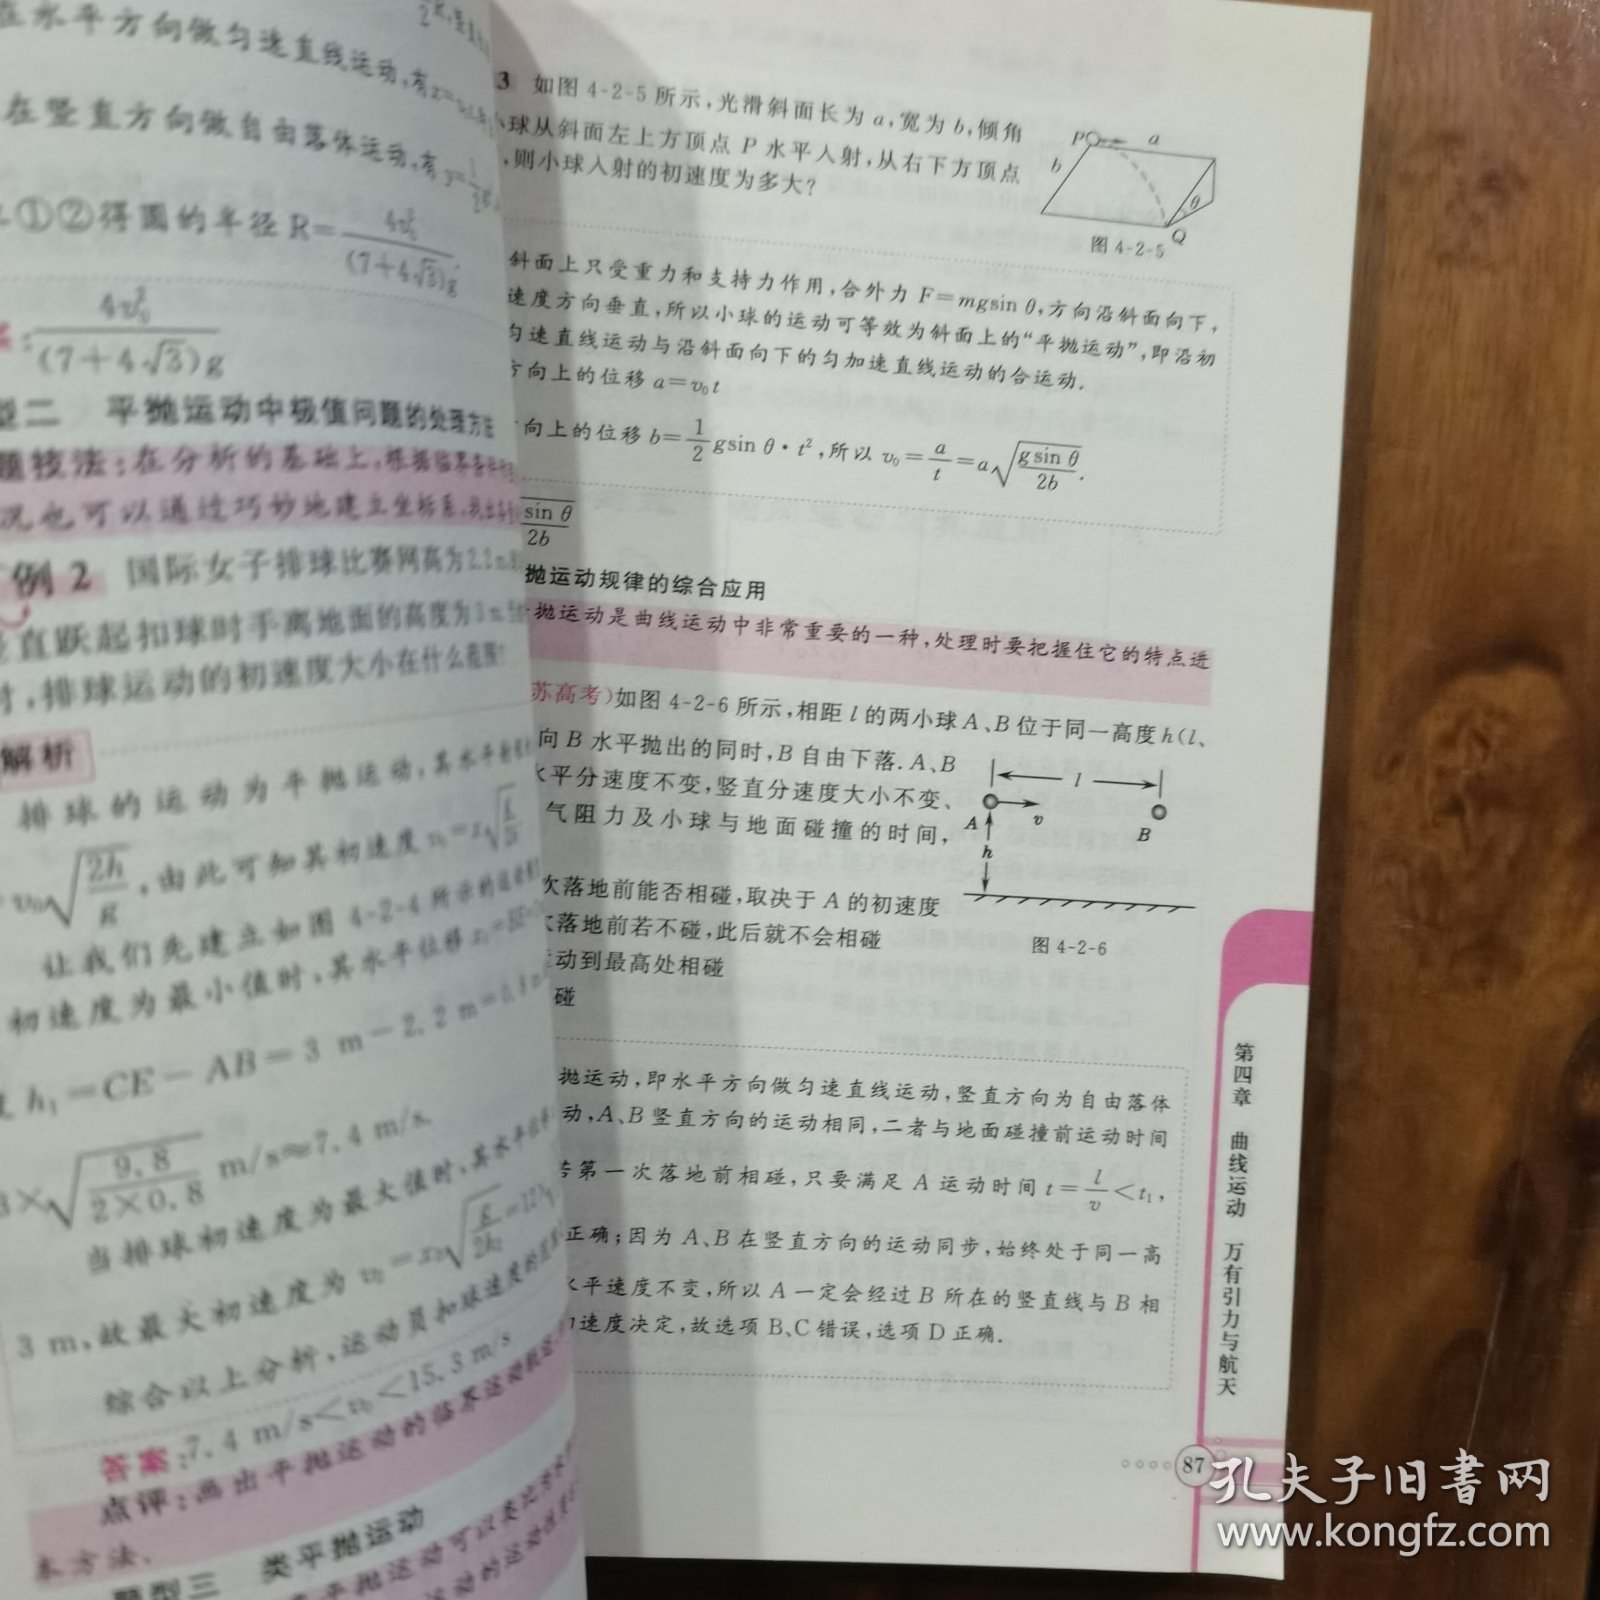 在水平方向做匀速直线运动,有
在竖直方向做自由落体运动,有y=
①②得圆的半径R=4v₀²/(7+4√3)g
4v₀²/(7+4√3)g
型二 平抛运动中极值问题的处理方法
题技法:在分析的基础上,根据临界条件
况也可以通过巧妙地建立坐标系,
例2 国际女子排球比赛网高为2.2 m,
直跃起扣球时手离地面的高度为3 m,
时,排球运动的初速度大小在什么范围?
解析
排球的运动为平抛运动,其水平
v₀√(2h/g),由此可知其初速度
让我们先建立如图4-2-4所示的
初速度为最小值时,其水平位移
h₁=CE-AB=3 m-2.2 m=0.8
×√(9.8/(2×0.8)) m/s≈7.4 m/s.
当排球初速度为最大值时,其水平位移
3 m,故最大初速度为
综合以上分析,运动员扣球速度的
7.4 m/s<v₀<15.3 m/s
答案:7.4 m/s<v₀<15.3 m/s
点评:画出平抛运动的临界运动轨迹
本方法.
题型三 类平抛运动
3 如图4-2-5所示,光滑斜面长为a,宽为b,倾角
球从斜面左上方顶点P水平入射,从右下方顶点
,则小球入射的初速度为多大?
P a
b
θ
Q
图4-2-5
斜面上只受重力和支持力作用,合外力F=mgsin θ,方向沿斜面向下,
速度方向垂直,所以小球的运动可等效为斜面上的“平抛运动”,即沿初
匀速直线运动与沿斜面向下的匀加速直线运动的合运动.
方向上的位移a=v₀t
向上的位移b=1/2 gsin θ·t²,所以v₀=a/t=a√(gsin θ/2b).
sin θ/2b
抛运动规律的综合应用
抛运动是曲线运动中非常重要的一种,处理时要把握住它的特点进
苏高考)如图4-2-6所示,相距l的两小球A、B位于同一高度h(l、
向B水平抛出的同时,B自由下落.A、B
水平分速度不变,竖直分速度大小不变、
气阻力及小球与地面碰撞的时间,
l
A v B
h
图4-2-6
次落地前能否相碰,取决于A的初速度
次落地前若不碰,此后就不会相碰
运动到最高处相碰
碰
抛运动,即水平方向做匀速直线运动,竖直方向为自由落体
动,A、B竖直方向的运动相同,二者与地面碰撞前运动时间
第一次落地前相碰,只要满足A运动时间t=l/v<t₁,
正确;因为A、B在竖直方向的运动同步,始终处于同一高
水平速度不变,所以A一定会经过B所在的竖直线与B相
速度决定,故选项B、C错误,选项D正确.
第四章 曲线运动 万有引力与航天
87
孔夫子旧书网
www.kongfz.com